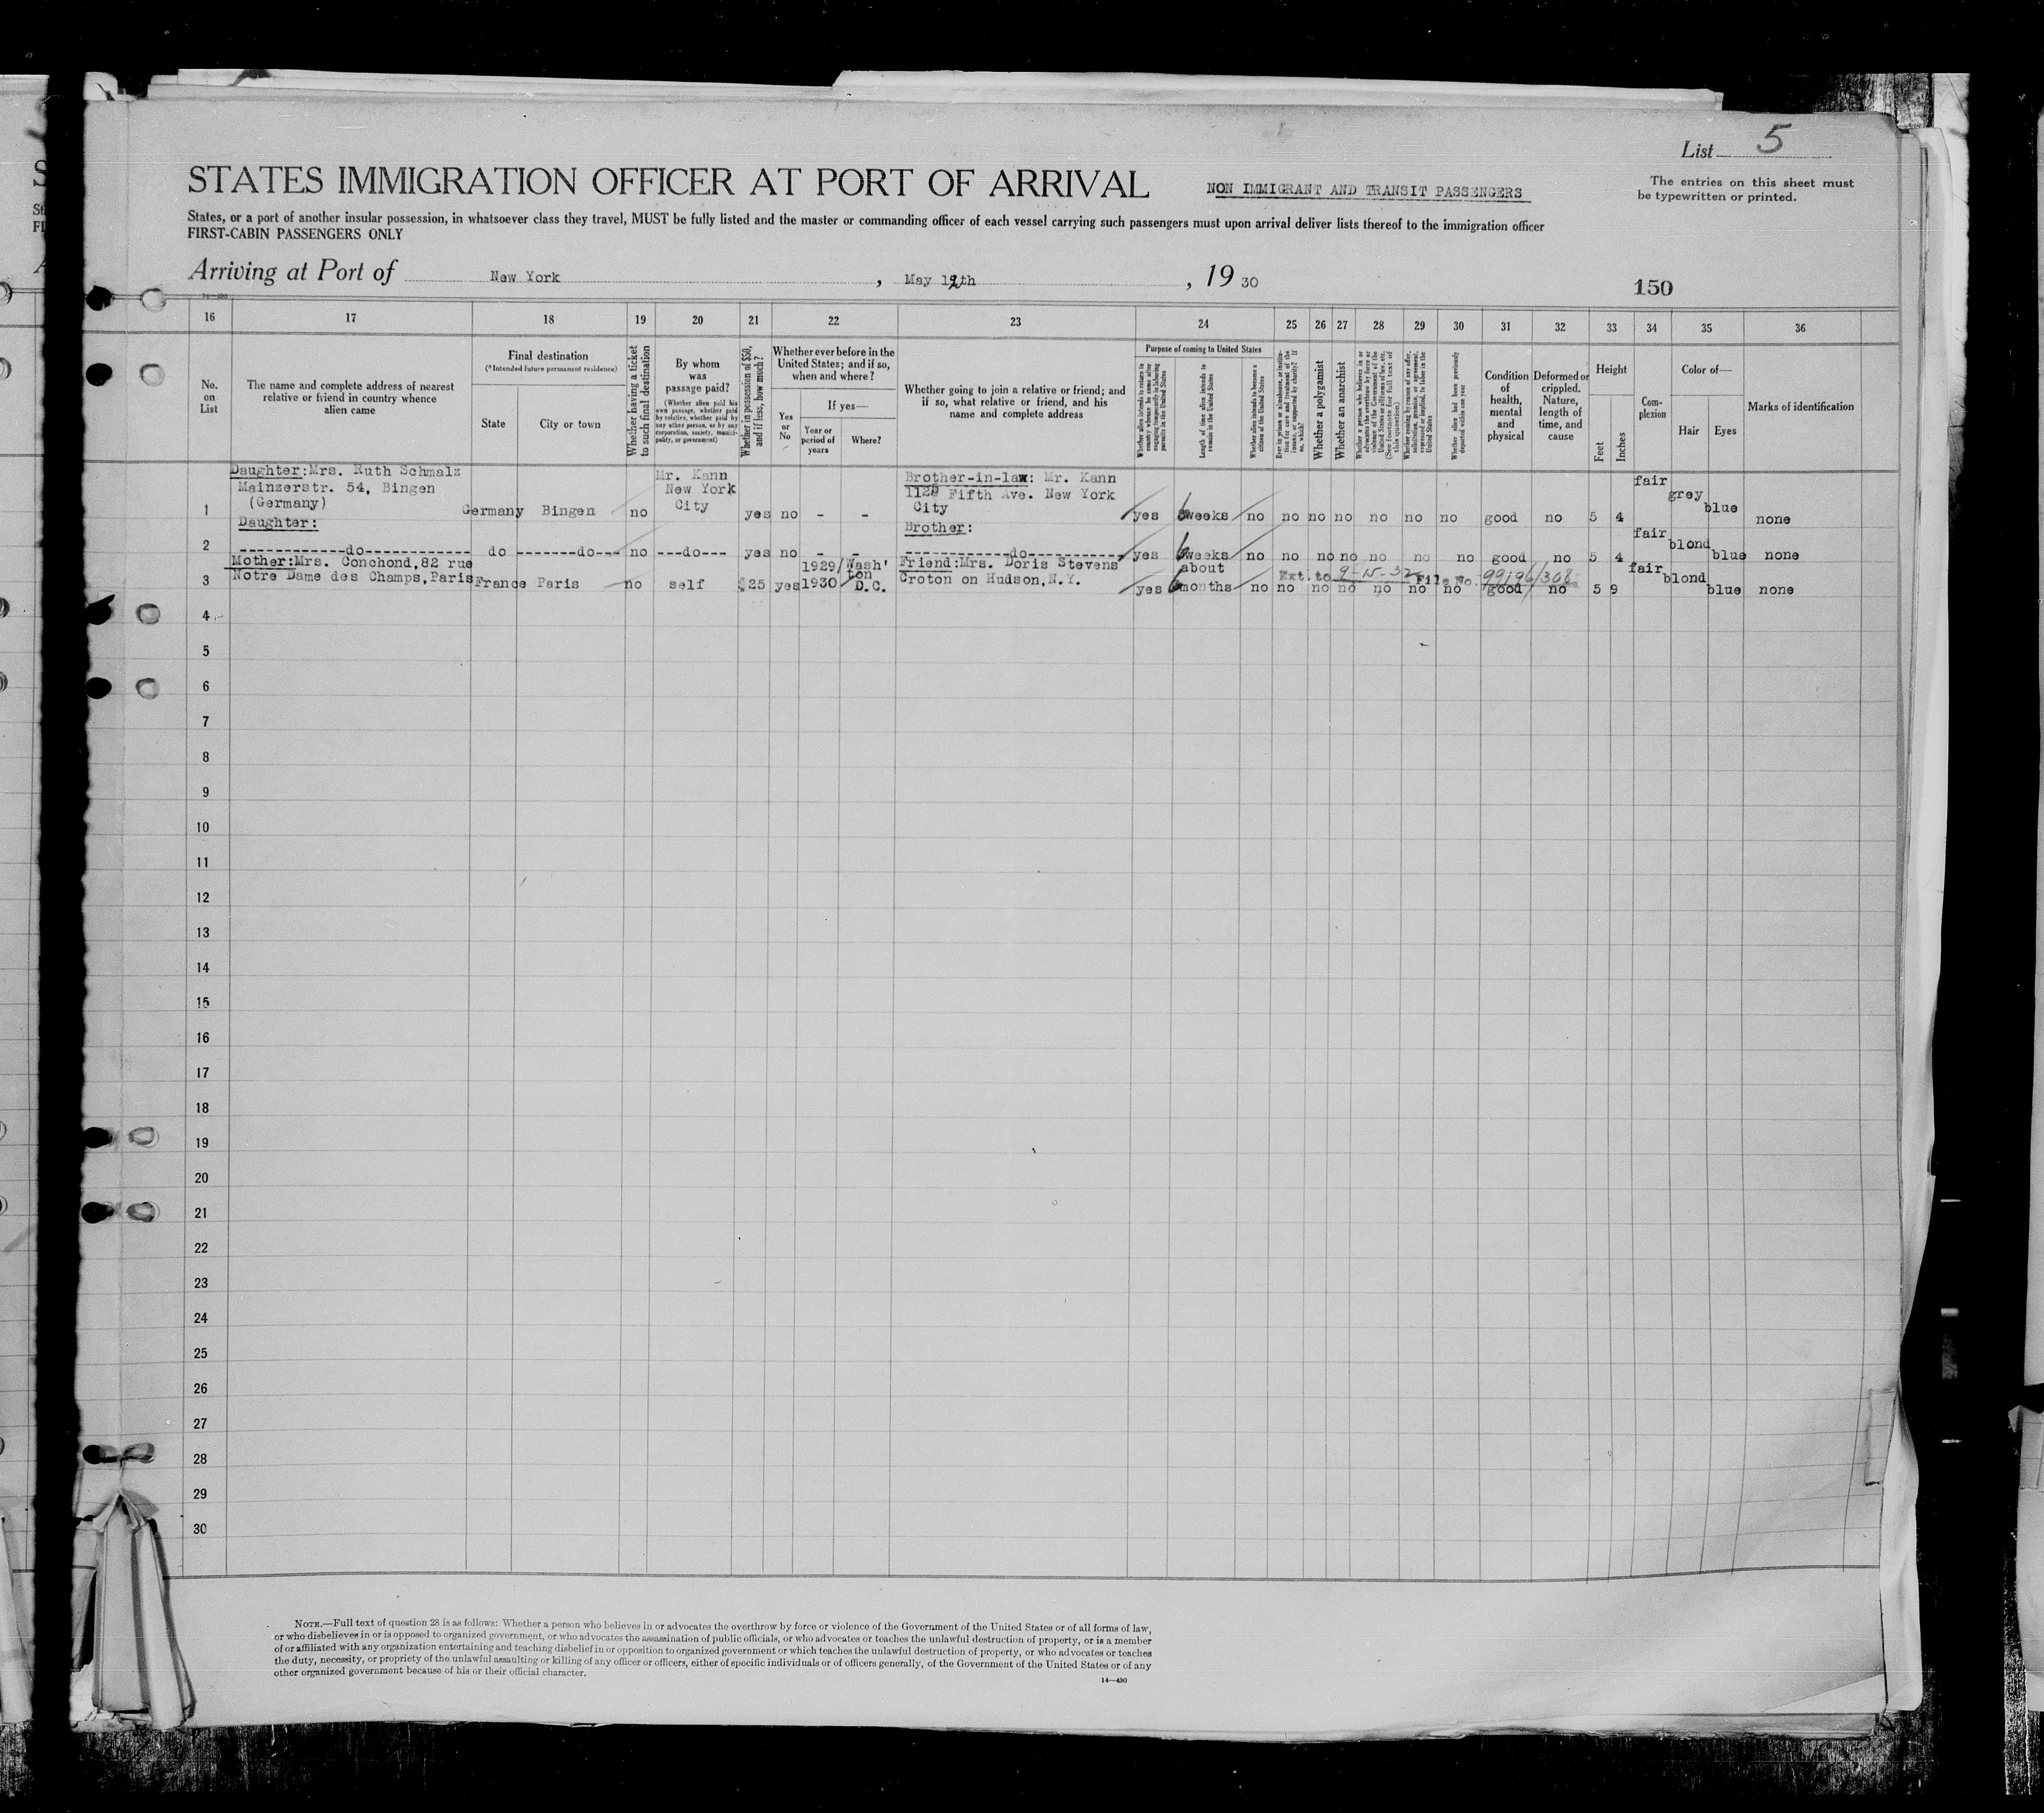 List 5
STATES IMMIGRATION OFFICER AT PORT OF ARRIVAL
NON IMMIGRANT AND TRANSIT PASSENGERS
The entries on this sheet must
be typewritten or printed.
States, or a port of another insular possession, in whatsoever class they travel, MUST be fully listed and the master or commanding officer of each vessel carrying such passengers must upon arrival deliver lists thereof to the immigration officer
FIRST-CABIN PASSENGERS ONLY
Arriving at Port of New York, May 12th, 1930
150
16 17 18 19 20 21 22 23 24 25 26 27 28 29 30 31 32 33 34 35 36
No. on List
The name and complete address of nearest
relative or friend in country whence
alien came
Final destination
(*Intended future permanent residence)
State
City or town
Whether having a ticket
to such final destination
By whom
was
passage paid?
(Whether alien paid his
own passage, whether paid
by relative, whether paid by
any other person, or by any
corporation, society, munici-
pality, or government)
Whether in possession of $50,
and if less, how much?
Whether ever before in the
United States; and if so,
when and where?
Yes or No
If yes—
Year or
period of
years
Where?
Whether going to join a relative or friend; and
if so, what relative or friend, and his
name and complete address
Purpose of coming to United States
Length of time alien intends to
remain in the United States
Whether alien intends to become a
citizen of the United States
Whether a polygamist
Whether an anarchist
Whether alien had been previously
deported within one year
Condition
of
health,
mental
and
physical
Deformed or
crippled.
Nature,
length of
time, and
cause
Height
Feet
Inches
Com-
plexion
Color of—
Hair
Eyes
Marks of identification
Daughter:Mrs. Ruth Schmalz
Mainzerstr. 54, Bingen
(Germany)
1 Germany Bingen no Mr. Kann New York City yes no - - Brother-in-law: Mr. Kann
Fifth Ave. New York
City
yes weeks no no no no no no no good no 5 4 fair grey blue none
Daughter:
2 ------------do------------ do -------do--- no ---do--- yes no - - Brother:
------------do------------ yes 6 weeks no no no no no no no good no 5 4 fair blond blue none
Mother:Mrs. Conchond,82 rue
Notre Dame des Champs,Paris
3 France Paris no self $25 yes 1929/1930 Wash'ton D.C. Friend:Mrs. Doris Stevens
Croton on Hudson,N.Y.
yes about 6 months no no no no no no no good no 5 9 fair blond blue none
Ext. to 9-15-32 File No. 99196/308
4
5
6
7
8
9
10
11
12
13
14
15
16
17
18
19
20
21
22
23
24
25
26
27
28
29
30
NOTE.—Full text of question 28 is as follows: Whether a person who believes in or advocates the overthrow by force or violence of the Government of the United States or of all forms of law,
or who disbelieves in or is opposed to organized government, or who advocates the assassination of public officials, or who advocates or teaches the unlawful destruction of property, or is a member
of or affiliated with any organization entertaining and teaching disbelief in or opposition to organized government or which teaches the unlawful destruction of property, or who advocates or teaches
the duty, necessity, or propriety of the unlawful assaulting or killing of any officer or officers, either of specific individuals or of officers generally, of the Government of the United States or of any
other organized government because of his or their official character.
14—430